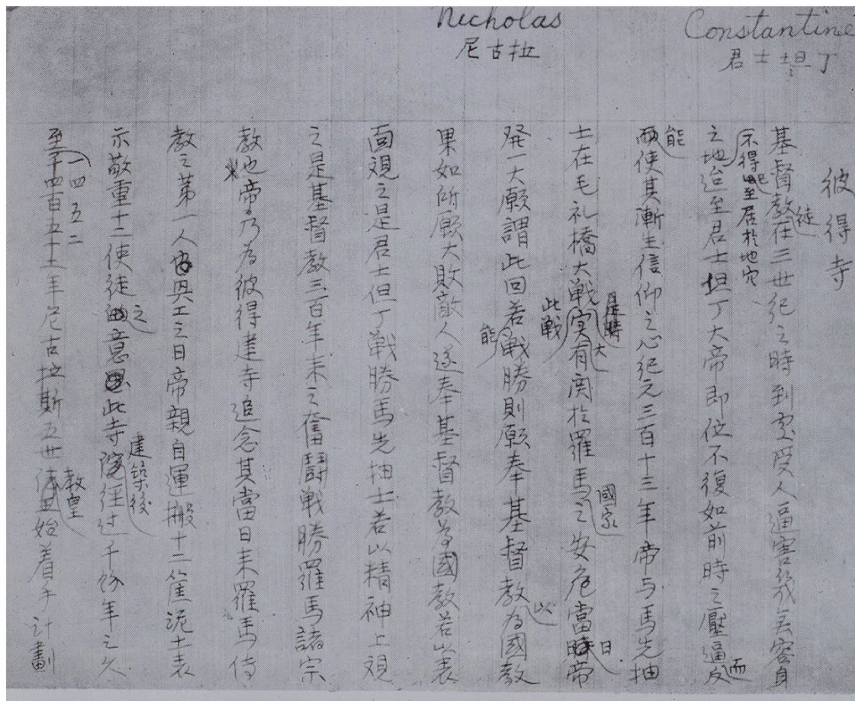 Constantine
君士坦丁
Nicholas
尼古拉
彼得寺
基督教徒在三世紀之時到處受人逼害幾无容身
不得已至居於地穴
之地迨至君士但丁大帝即位不復如前時之壓逼反而
能使其漸生信仰之心紀元三百十三年帝与馬先抽
士在毛礼橋大戰是時此戰实大有関於羅馬國家之安危當日帝
発一大願謂此回若能戰勝則願奉基督教以為國教
果如所願大敗敵人遂奉基督教為國教若以表
面視之是君士但丁戰勝馬先抽士若以精神上視
之是基督教三百年来之奮鬪戰勝羅馬諸宗
教也帝乃為彼得建寺追念其當日来羅馬侍
教之第一人也興工之日帝親自運搬十二筐泥土表
示敬重十二使徒之意此寺建築後經过千餘年之久
至一四五二年尼古拉斯五世教皇始着手計劃